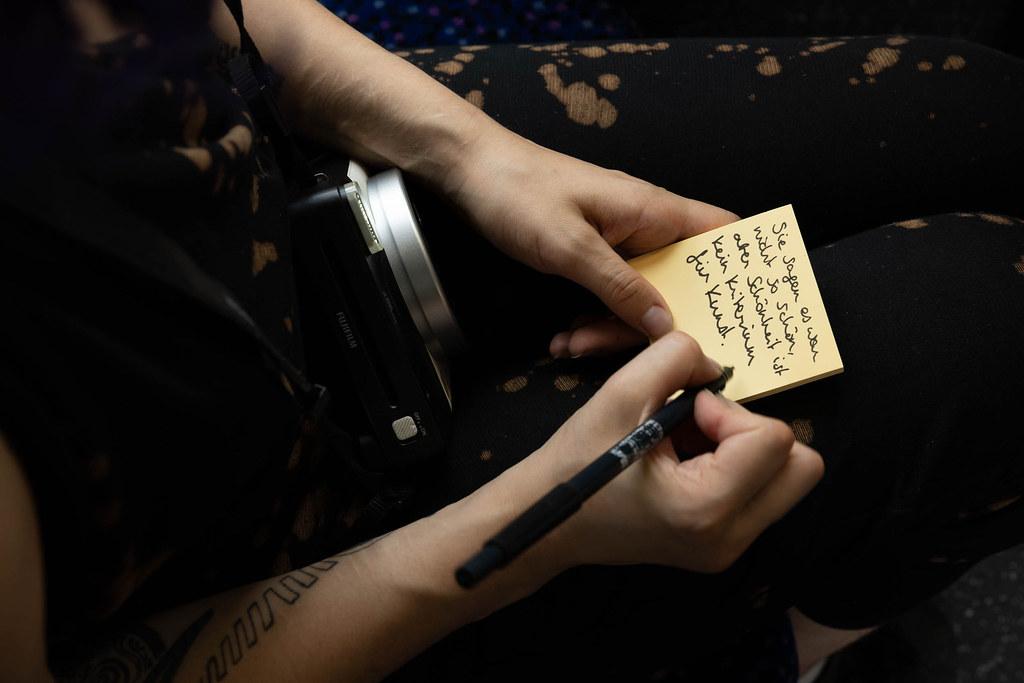 Sie sagen es war
nicht so schön,
aber Schönheit ist
kein Kriterium
für Kunst.
FUJIFILM